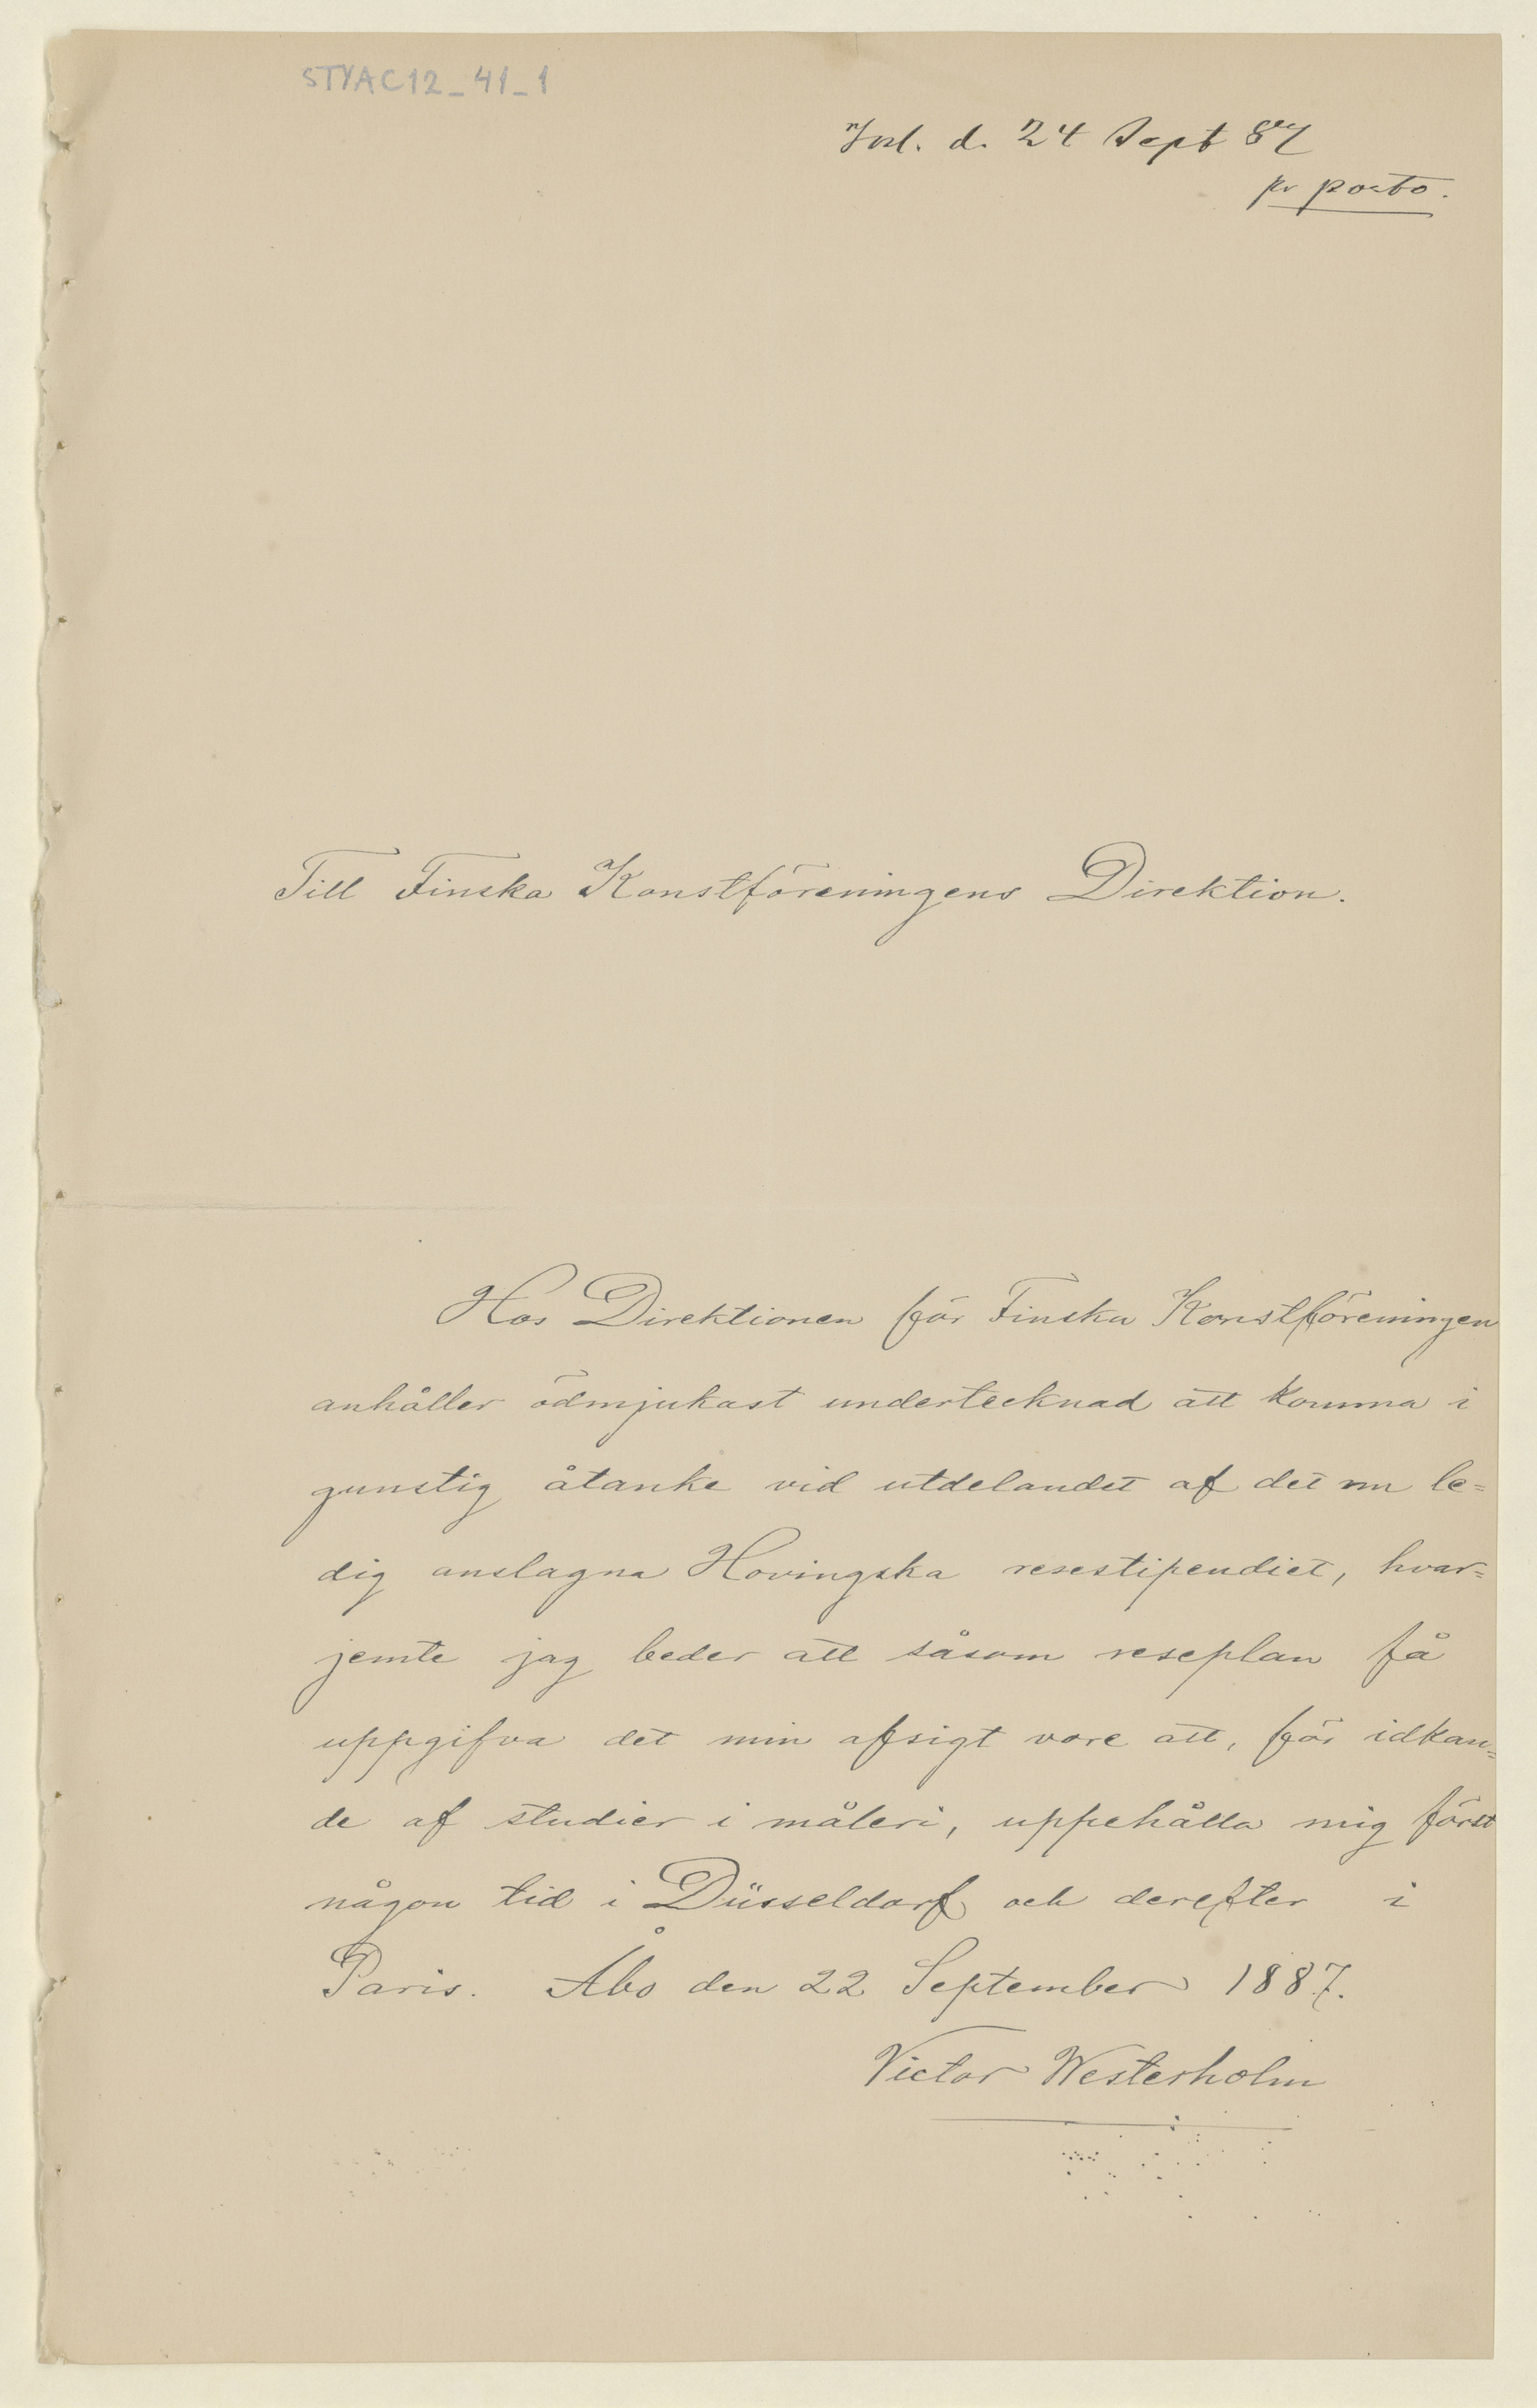 STYAC12_41_1
Inl. d. 24 Sept 87
pr posto.
Till Finska Konstföreningens Direktion.
Hos Direktionen för Finska Konstföreningen
anhåller ödmjukast undertecknad att komma i
gunstig åtanke vid utdelandet af det nu le=
dig anslagna Hovingska resestipendiet, hvar=
jemte jag beder att såsom reseplan få
uppgifva det min afsigt vore att, för idkan=
de af studier i måleri, uppehålla mig först
någon tid i Düsseldorf och derefter i
Paris. Åbo den 22 September 1887.
Victor Westerholm